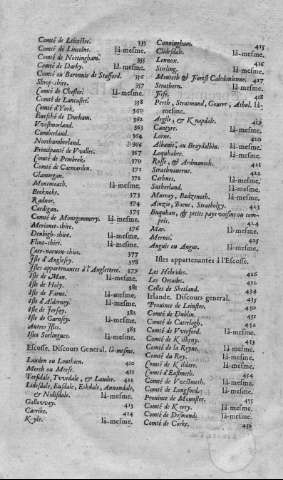 Comté de Leicestre. 355
Comté de Lincolne. là-mesme.
Comté de Nottingham. 355
Comté de Darby. là-mesme.
Comté ou Baronnie de Stafford. 356
Shrop-shire. 357
Comté de Chester. là-mesme.
Comté de Lancastre. 358
Comté d'York. 360
Evesché de Durham. 362
Vvestmorland.
Cumberland.
Northumberland. 364
Principauté de Vvalles.
Comté de Penbrok. 370
Comté de Caermarden. 371
Glamorgan.
Monemouth. là-mesme.
Brecknoke. 373
Radnor. 374
Cardigan. 375
Comté de Montgommery. là-mesme.
Merionet-shire. 376
Denbigh-shire. là-mesme.
Flint-shire. là-mesme.
Caer-narvon-shire. 377
Isle d'Anglesey. 378
Isles appartenantes à l'Angleterre. 379
Isle de Man. là-mesme.
Isle de Holy. 381
Isle de Farne. là-mesme.
Isle d'Alderney. 382
Isle de Jersey. 382
Isle de Garnsey. là-mesme.
Autres Isles. 383
Isles Sorlingues. là-mesme.
Escosse. Discours General. là-mesme.
Lauden ou Louthien. 410
Merch ou Merse. 411
Tivedale, Tvvedale, & Lauder. 412
Lidesdale, Eusdale, Eskdale, Annandale,
& Nidisdale. là-mesme.
Gallovvay. 413
Carrike. 414
Kyle. là-mesme.
Cunningham. 415
Cluydsdale. là-mesme.
Lennox. 416
Sterling. là-mesme.
Menteith & Forest Caledonienne. 417
Stratherne. là-mesme.
Fife. 418
Perth, Stratmund, Gourre, Athol. là-
mesme.
Argile, & Knapdale.
Cantyre. là-mesme.
Lorne. 420
Albanie, ou Breydalbin. là-mesme.
Loquhabre. là-mesme.
Rosse, & Ardmanoch. 421
Strathnavern. là-mesme.
Cathnes. là-mesme.
Sutherland. là-mesme.
Murray, Badgenoth. là-mesme.
Buquhan, & petits pays voisins ou com-
pris.
Mar. là-mesme.
Mernis. là-mesme.
Anguis ou Angus. là-mesme.
Isles appartenantes à l'Escosse.
Les Hebrides. 426
Les Orcades.
Celles de Shetland.
Irlande. Discours general.
Province de Leinster.
Comté de Dublin.
Comté de Caterlogh.
Comté de Vvexford. là-mesme.
Comté de Kilkenny. là-mesme.
Comté de la Reyne. là-mesme.
Comté du Roy. là-mesme.
Comté de Kildare. là-mesme.
Comté d'Eastmeth. là-mesme.
Comté de Vvestmeath. là-mesme.
Comté de Longfort. là-mesme.
Province de Mounster. 455
Comté de Kerry. là-mesme.
Comté de Desmond. là-mesme.
Comté de Corke. 456